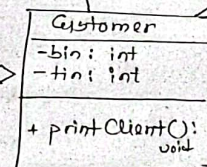 Customer
-bin: int
-tin: int
+ printClient():
void